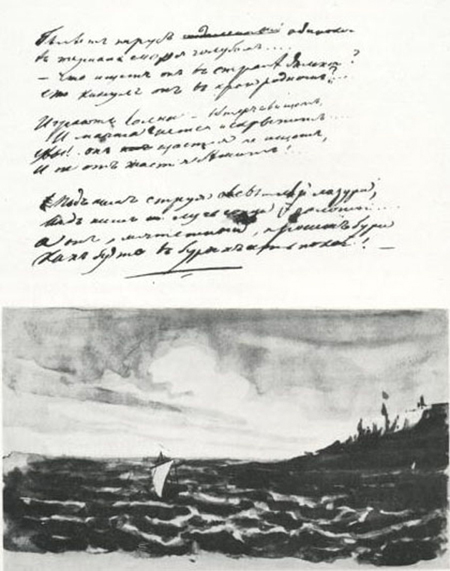 Бѣлѣетъ парусъ одинокой
въ туманѣ моря голубомъ....
– что ищетъ онъ въ странѣ далекой?
что кинулъ онъ въ краю родномъ?...
Играютъ волны – вѣтръ свищетъ,
И мачта гнется и скрыпитъ....
Увы! онъ щастья не ищетъ,
И не отъ щастья бѣжитъ!...
Подъ нимъ струя свѣтлѣй лазури,
Надъ нимъ лучь золотой...
а онъ, мятежный, проситъ бури
Какъ будто въ буряхъ есть покой! –